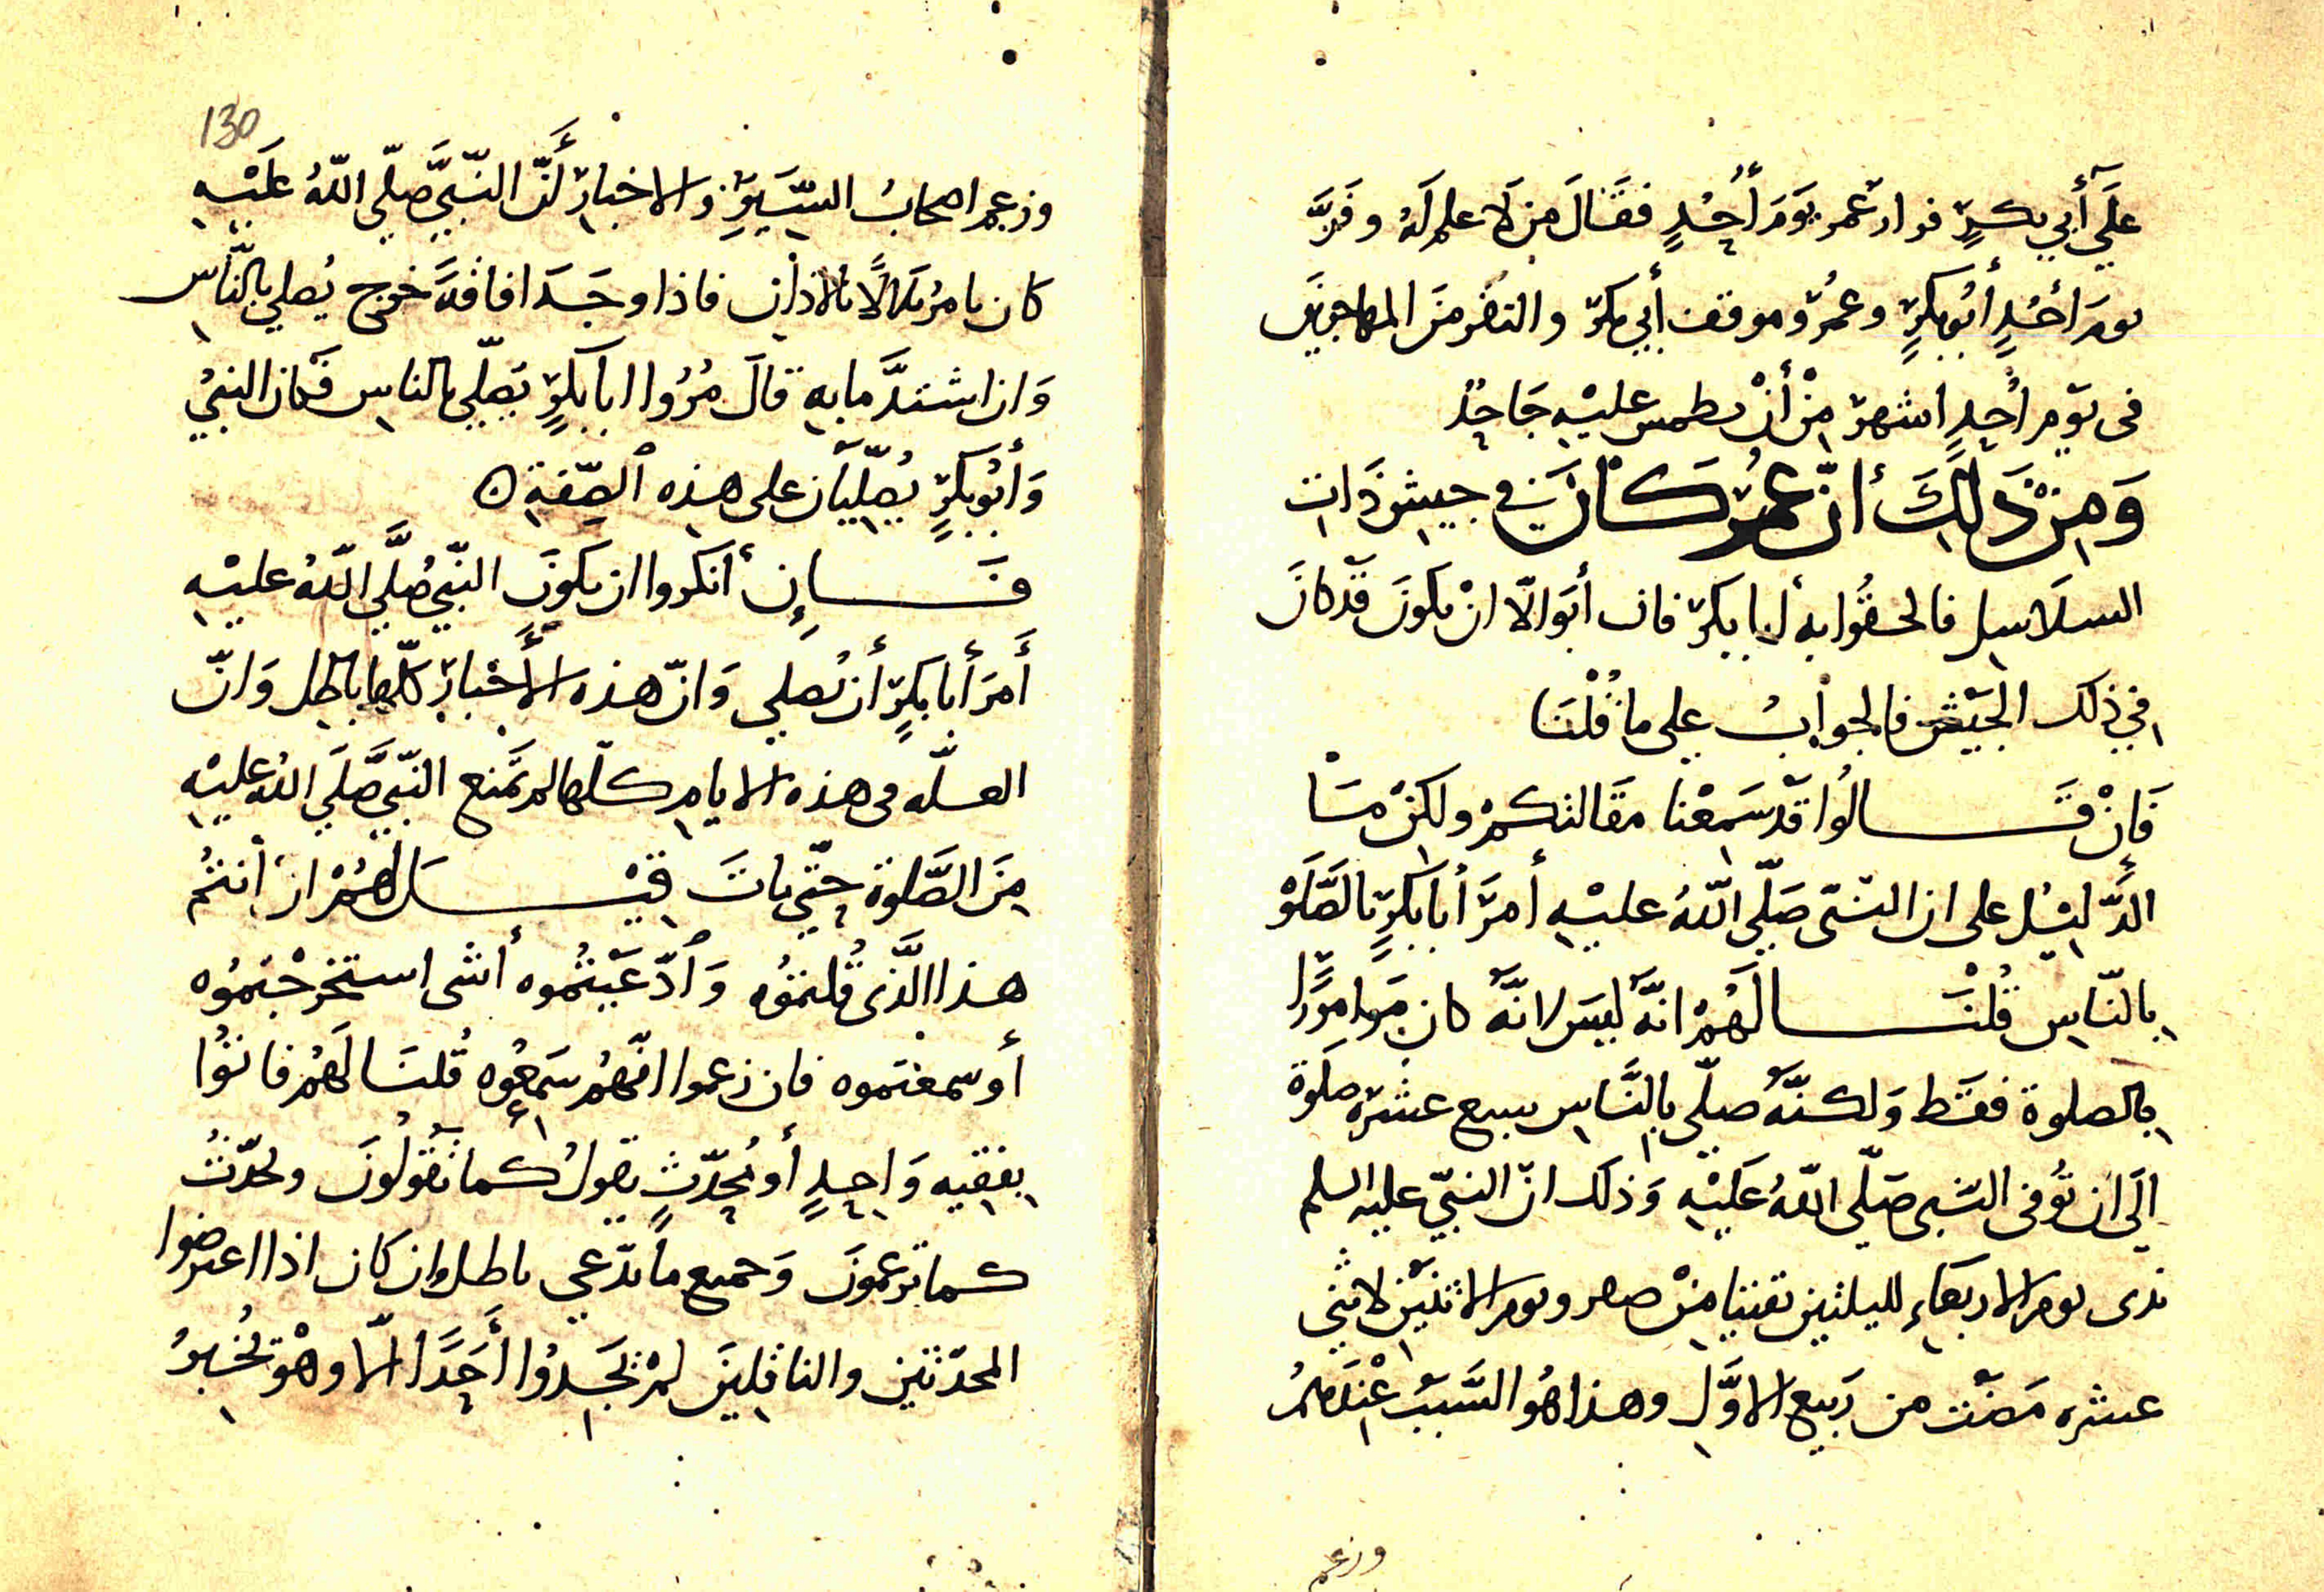 عَلَى أَبي بكرٍ فرار عمر يَوَمَ أُحُدٍ فقَالَ مَن لَا علم لَهُ وفَرَّ
يومَ أحُدٍ أبُو بكرٍ وعُمَرُ وموقف أبي بكر والنفر منَ المهاجرينَ
فى يَوم أُحُدٍ اشهر مِنْ أنْ يطمس عليْهِ جَاحِدٌ
وَمِنْ ذَلِكَ أنّ عُمَرَ كَانَ في جيش ذَات
السلَاسِل فالحقُوا به أبا بكر فان أبَوا الّا انْ يكونَ قَد كانَ
في ذلك الجَيْش فالجوابُ على ما قُلْنَا
فَانْ قَالُوا قَد سَمِعْنا مقَالتكمْ ولكنْ مَا
الدَّلِيْل على ان النبى صَلّى اللّهُ عليْهِ أمرَ أبا بكرٍ بالصَّلَوة
بالنّاسِ قُلْنَا لَهُمْ انَّهُ ليسَ لانَّهُ كان مرارًا
بالصلوة فقَط وَلكنَّهُ صلّى بالنَّاسِ سبع عشرَه صلَوة
إلَى ان تُوفى النبى صَلّى اللّهُ عَلَيْهِ وَذلَك انّ النبيّ عليه السلم
بدى يوم الاربَعَاءِ لليلتين بقيتا مِنْ صفر ويوم الاثنَيْنِ لاثنَى
عشره مَضَت من رَبيع الاوَّلِ وهذا هُو السَّبَبُ عِنْدهمُ
وزعم
130
وزعم اصحابُ السِّيَرِ والاخبار أَنّ النّبيَّ صلّى اللّهُ عَلَيْهِ
كان يامرُ بلالًا بالاذان فاذا وجَدَ افاقةً خرج يُصلي بالنَّاس
وَان اشتدَّ ما به قالَ مُرُوا ابا بكرٍ يصَلّي بالناس فَكان النبيُ
وَأبُو بكرٍ يُصلّيَان على هذه الصِّفَةِ ه
فَإِن أنكروا ان يكونَ النّبيّ صلَّى اللّهُ عليْهِ
أَمَرَ أبا بكرٍ أن يُصلي وَانّ هذه الأَخْبَار كلّها باطل وَانّ
العلّه فى هذه الايام كلّها لم تَمنع النّبيّ صَلَّى اللهُ عليْهِ
مِنَ الصَّلوة حتّى ماتَ قِيْلَ لَهُمْ ان أنتُم
هذا الَّذى قُلتمُوه وَادّعَيْتُموه أشى استخرجْتمُوه
أو سمعتموه فان زعموا انّهُم سَمعُوه قُلنَا لَهُم فاتوُا
بفقيه وَاحِدٍ أو مُحدّثٍ يقولُ كما تَقُولُونَ ويحدّثُ
كما تزعمونَ وَجميع ما تدّعي باطل وان كان اذا اعترضوا
المحدّثين والناقلينَ لمْ يَجدُوا أَحَدًا الّا وهْوَ يُخبرُ